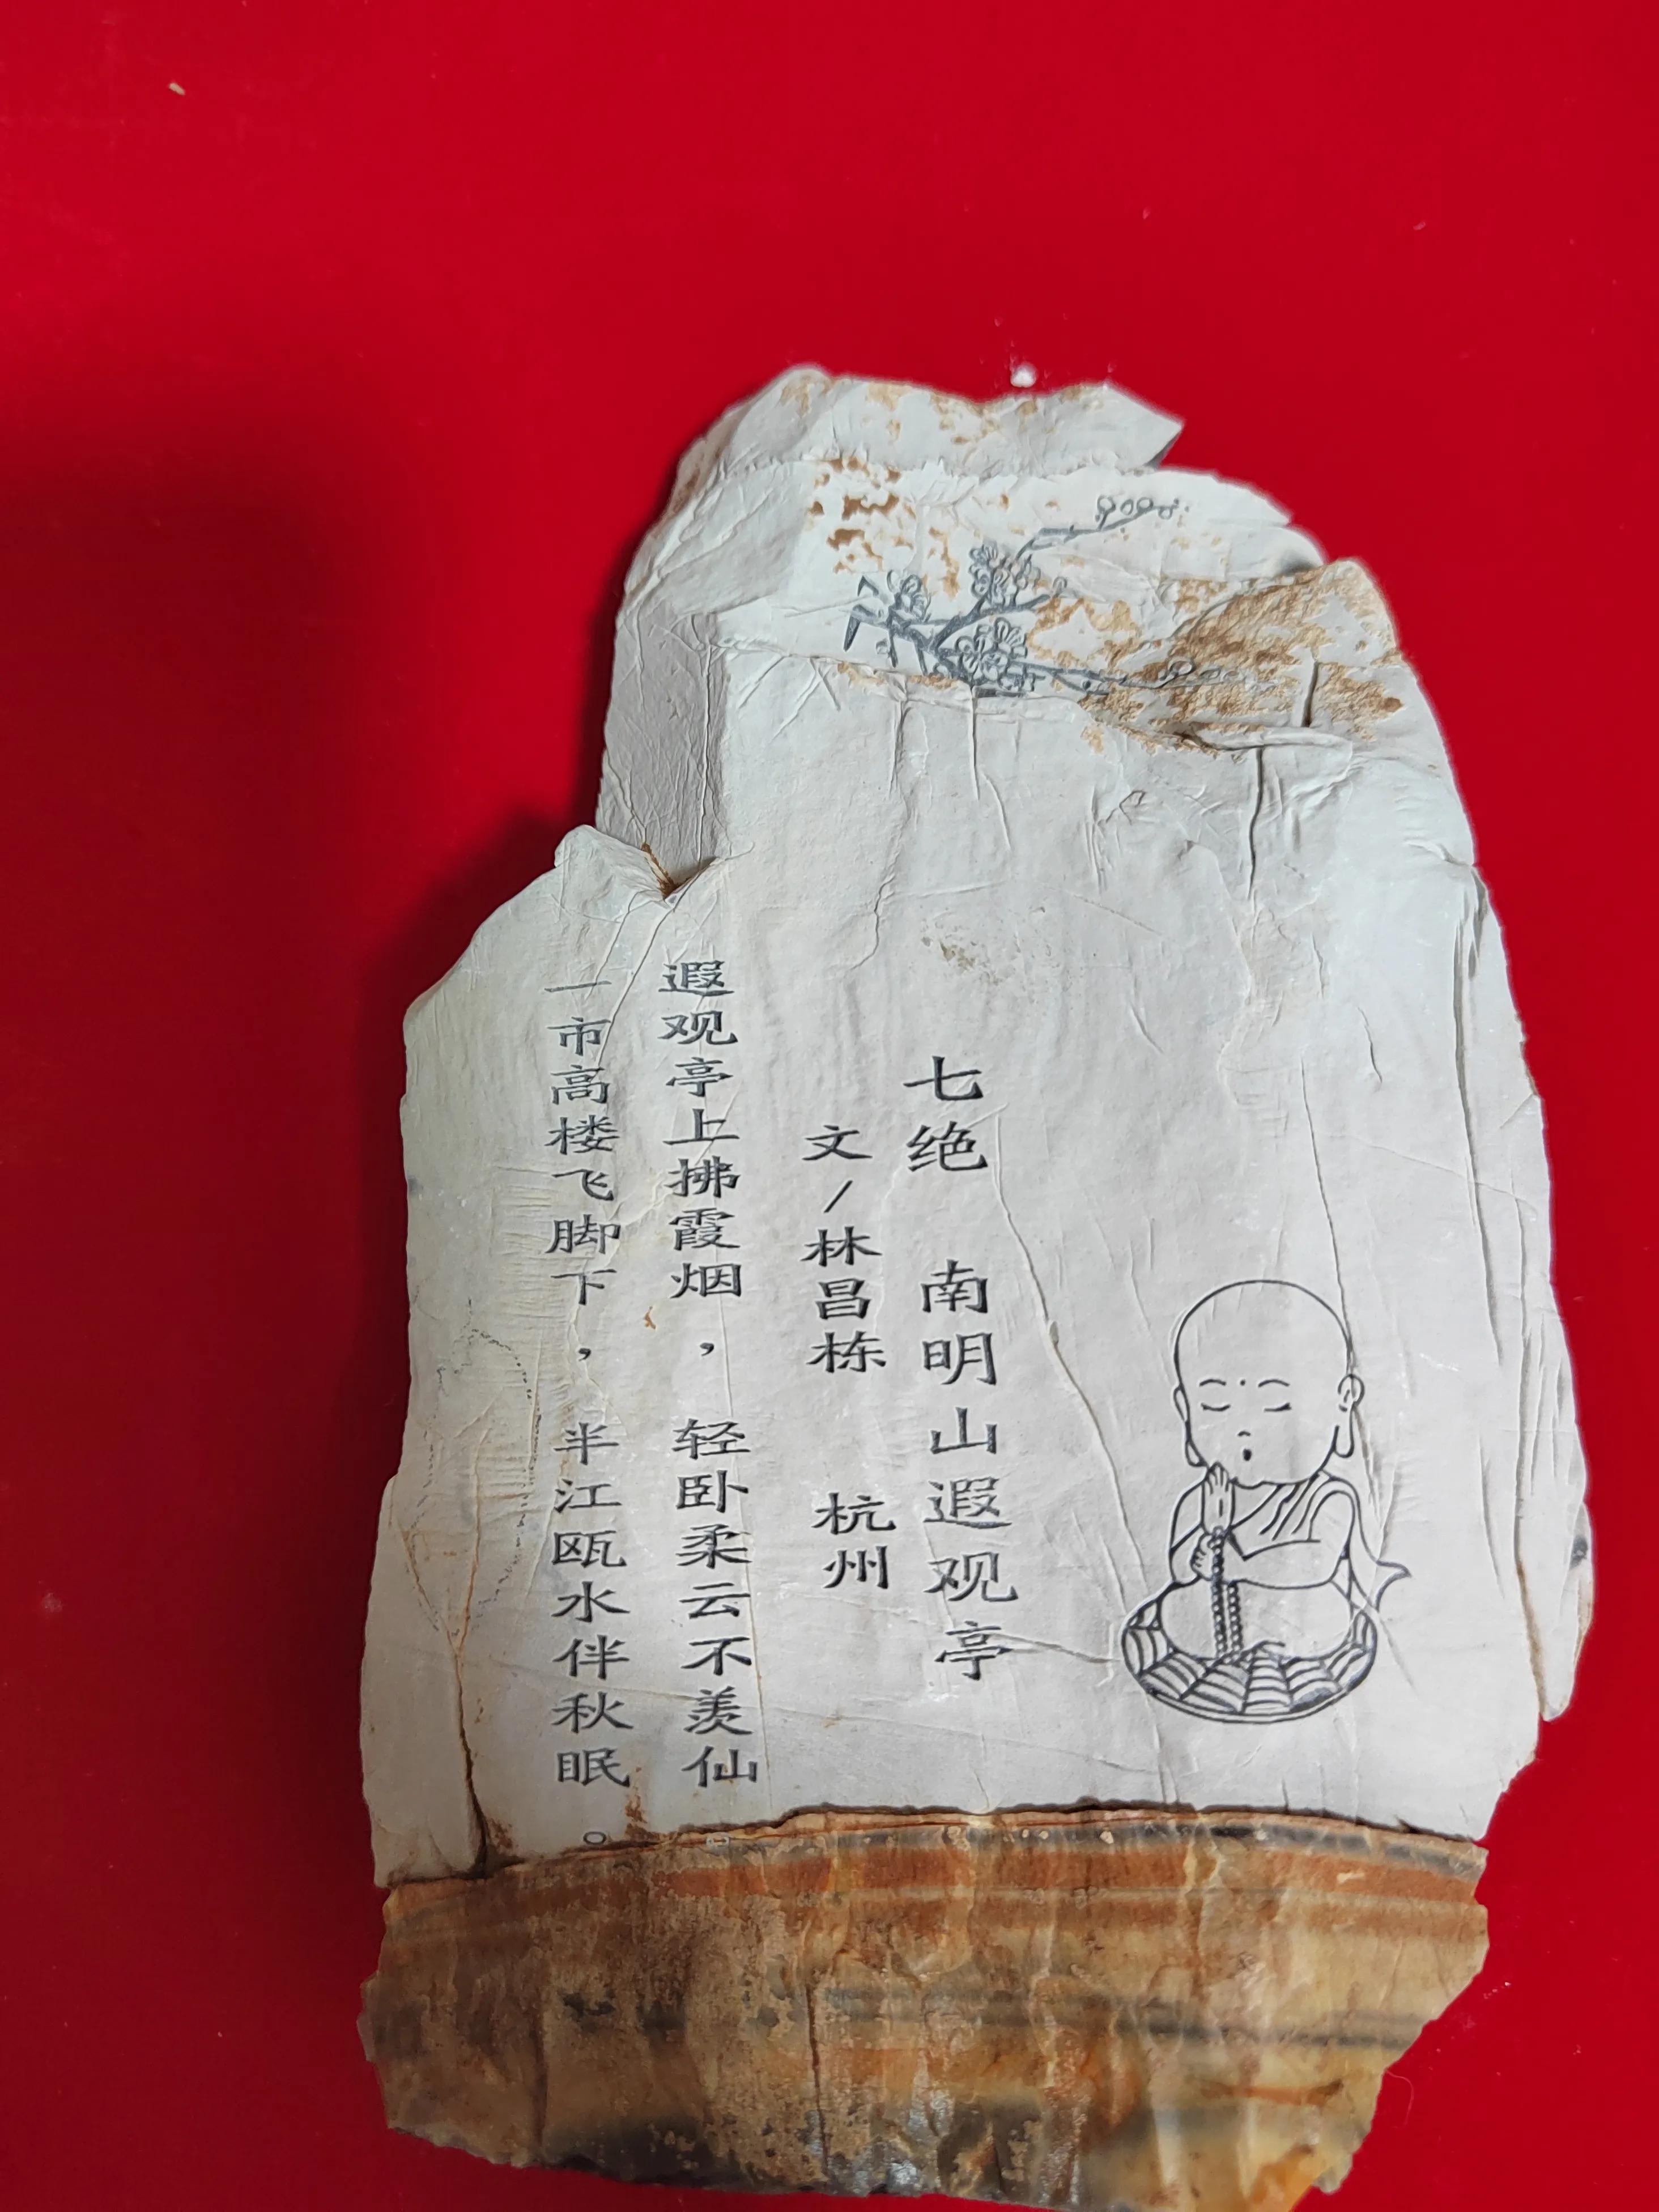 七绝 南明山遐观亭
文/林昌栋 杭州
遐观亭上拂霞烟，轻卧柔云不羡仙。
一市高楼飞脚下，半江瓯水伴秋眠。